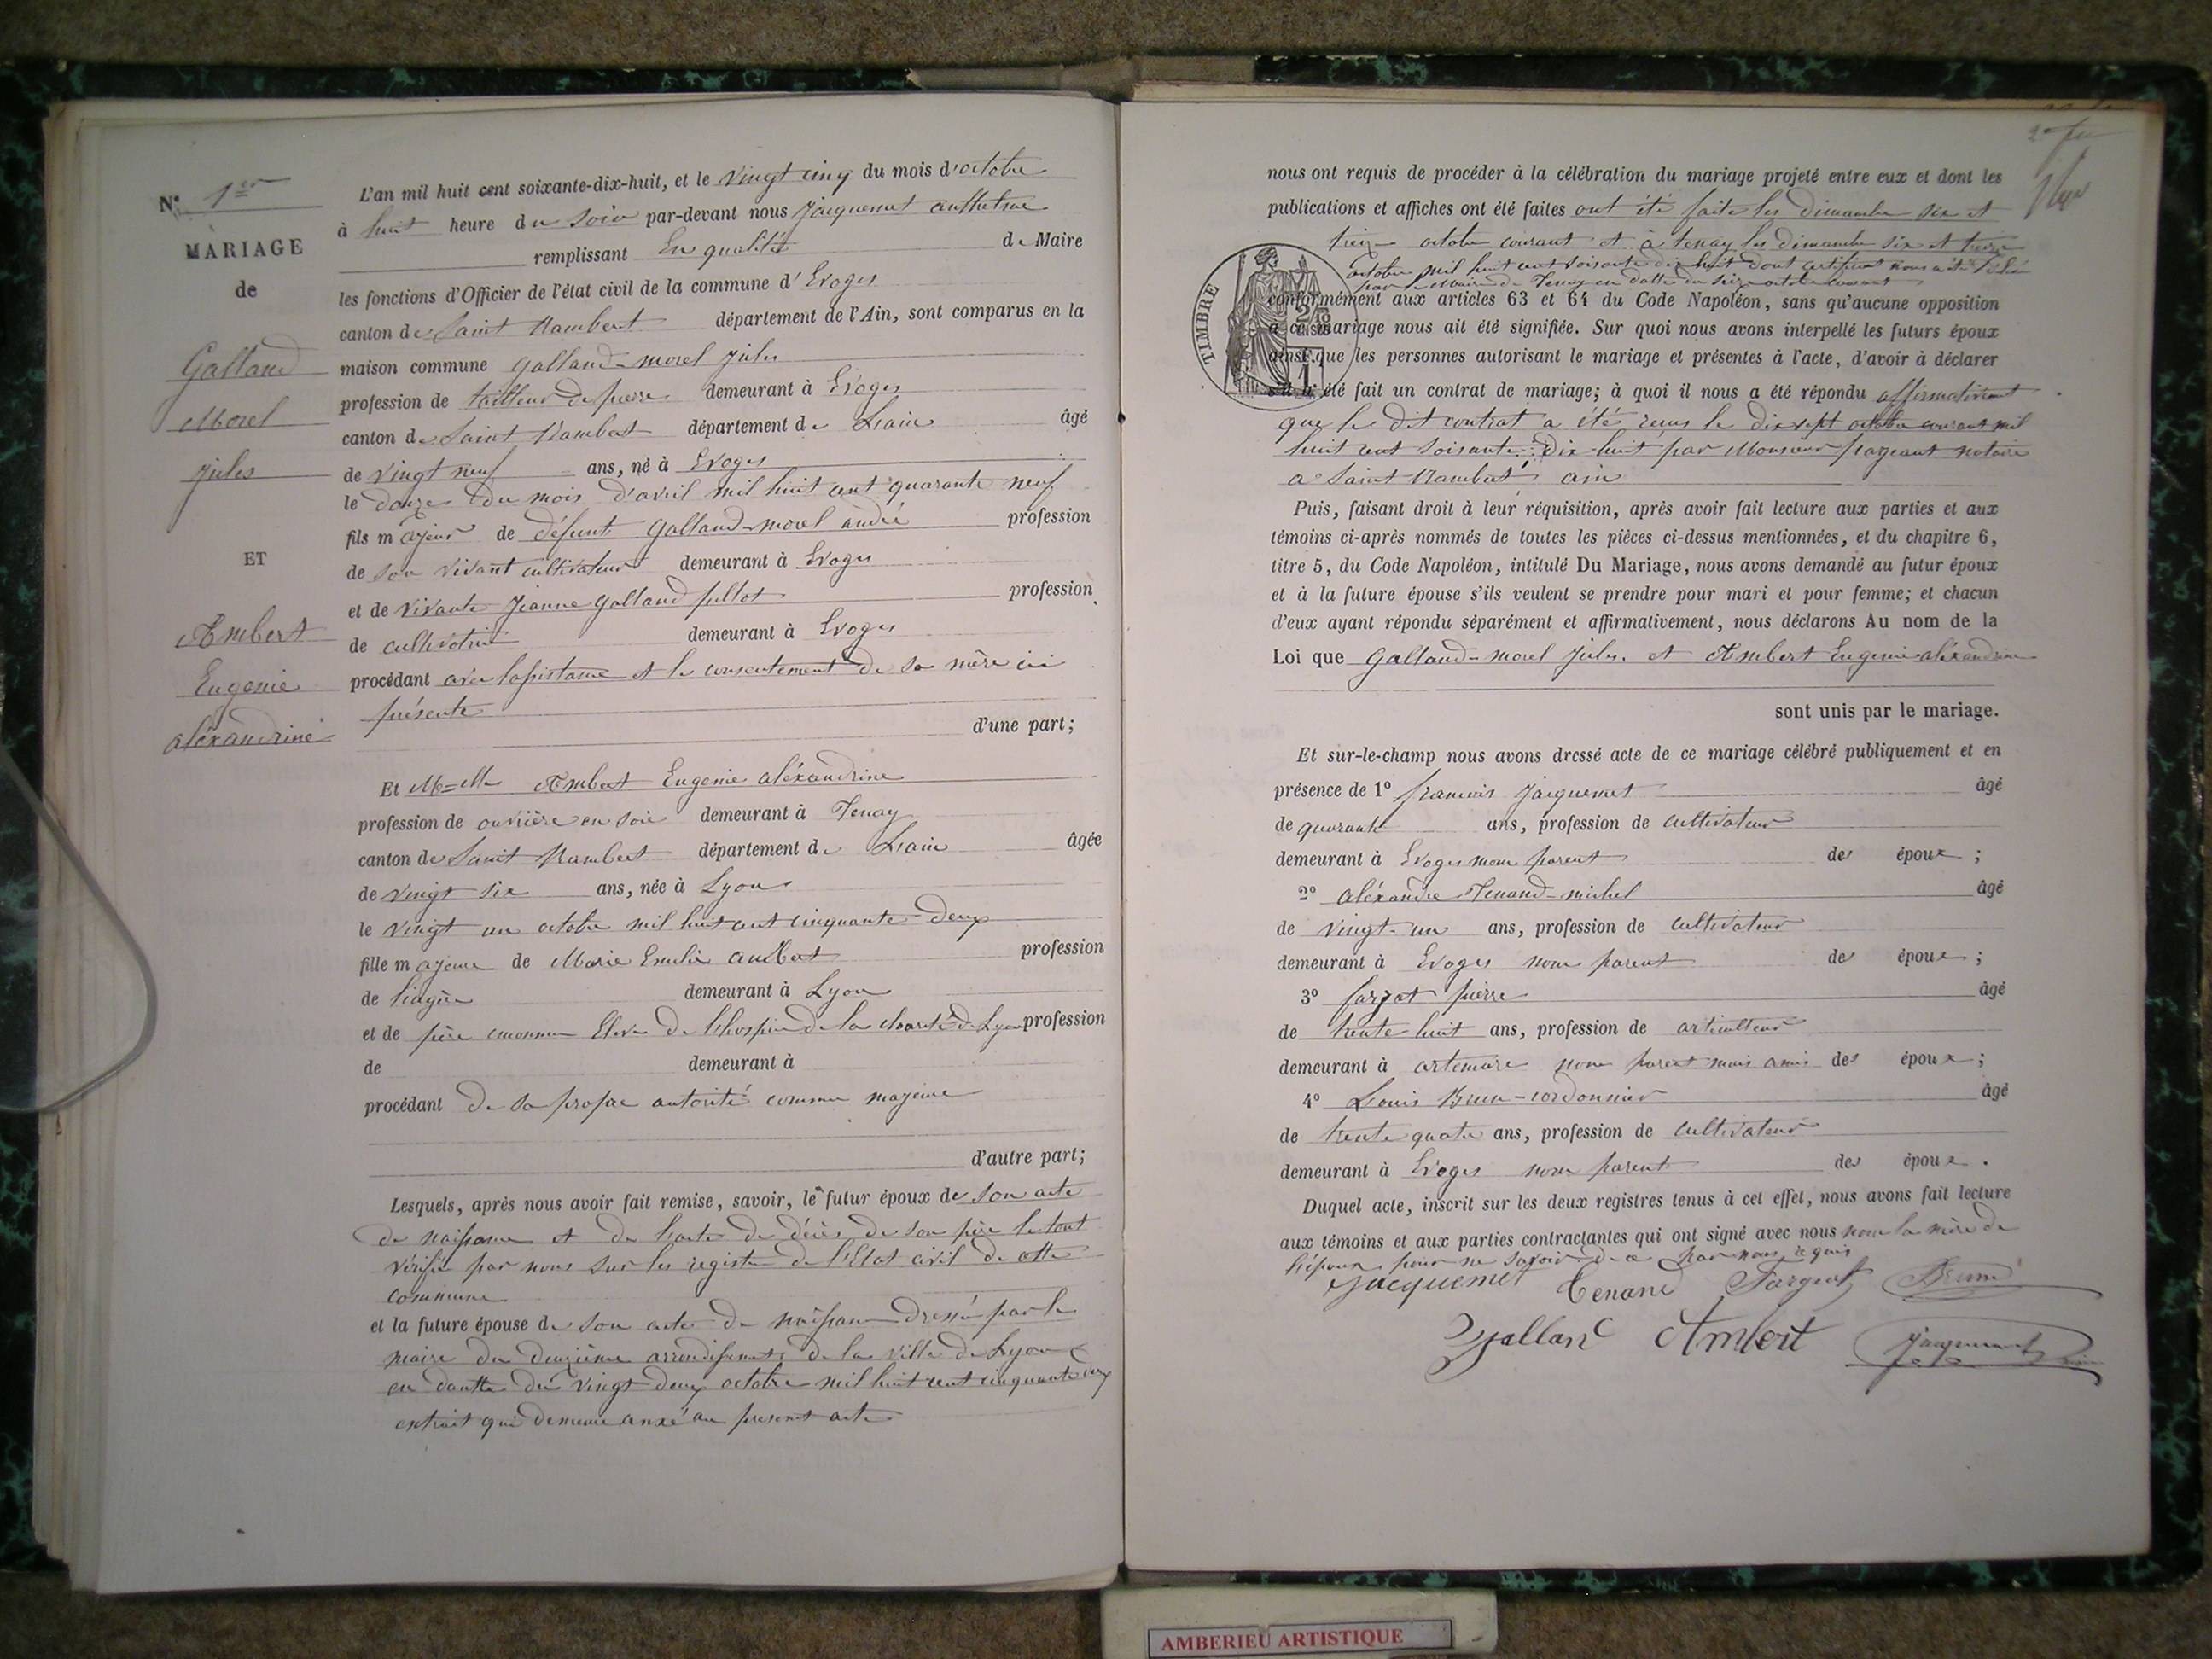 N° 1er
MARIAGE
de
Galland
Morel
jules
ET
Ambert
Eugenie
aléxandrine
L'an mil huit cent soixante-dix-huit, et le vingt cinq du mois d'octobre
à huit heure du soir par-devant nous Jacquemet anthelme
remplissant En qualité de Maire
les fonctions d'Officier de l'état civil de la commune d'Evoges
canton de Saint Rambert département de l'Ain, sont comparus en la
maison commune galland-morel jules
profession de tailleur de pierre demeurant à Evoges
canton de Saint Rambert département de Lain âgé
de vingt neuf ans, né à Evoges
le douze du mois d'avril mil huit cent quarante neuf
fils majeur de défunt galland-morel andré profession
de son vivant cultivateur demeurant à Evoges
et de vivante Jeanne galland fullot profession
de cultivatrice demeurant à Evoges
procédant avec lassistance et le consentement de sa mère ici
présente
d'une part;
Et Melle Ambert Eugenie aléxandrine
profession de ouvrière en soie demeurant à Tenay
canton de Saint Rambert département de Lain âgée
de vingt six ans, née à Lyon
le vingt un octobre mil huit cent cinquante-deux
fille majeure de Marie Emilie ambert profession
de demeurant à Lyon
et de père Eleve de lhospice de la charité de Lyon profession
de demeurant à
procédant de sa propre autorité comme majeure
d'autre part;
Lesquels, après nous avoir fait remise, savoir, le futur époux de son acte
de naissance et de lacte de décès de son père le tout
vérifié par nous sur les registre de l'Etat civil de cette
commune
et la future épouse de son acte de naissance dressé par le
maire du deuxième arrondissement de la ville de Lyon
en datte du vingt deux octobre mil huit cent cinquante deux
extrait qui demeure anxé au present acte
nous ont requis de procéder à la célébration du mariage projeté entre eux et dont les
publications et affiches ont été faites ont été faite les dimanche six et
treize octobre courant et à tenay les dimanche six et treize
octobre mil huit cent soixante dix huit dont certificat nous a été
par le Maire de Tenay en datte du seize octobre courant
TIMBRE
conformément aux articles 63 et 64 du Code Napoléon, sans qu'aucune opposition
à ce mariage nous ait été signifiée. Sur quoi nous avons interpellé les futurs époux
ainsi que les personnes autorisant le mariage et présentes à l'acte, d'avoir à déclarer
s'il a été fait un contrat de mariage; à quoi il nous a été répondu affirmativement
que le dit contrat a été reçus le dix sept octobre courant mil
huit cent soixante-dix huit par Monsieur pageant notaire
a Saint Rambert ain
Puis, faisant droit à leur réquisition, après avoir fait lecture aux parties et aux
témoins ci-après nommés de toutes les pièces ci-dessus mentionnées, et du chapitre 6,
titre 5, du Code Napoléon, intitulé Du Mariage, nous avons demandé au futur époux
et à la future épouse s'ils veulent se prendre pour mari et pour femme; et chacun
d'eux ayant répondu séparément et affirmativement, nous déclarons Au nom de la
Loi que galland-morel jules. et Ambert Eugenie aléxandrine
sont unis par le mariage.
Et sur-le-champ nous avons dressé acte de ce mariage célébré publiquement et en
présence de 1° francois jacquemet âgé
de quarante ans, profession de cultivateur
demeurant à Evoges non parent des époux ;
2° aléxandre Tenand-michel âgé
de vingt-un ans, profession de cultivateur
demeurant à Evoges non parent des époux ;
3° fargot pierre âgé
de trente huit ans, profession de articulteur
demeurant à artemare non parent mais amis des époux ;
4° Louis Brun-cordonnier âgé
de trente quatre ans, profession de cultivateur
demeurant à Evoges non parent des époux .
Duquel acte, inscrit sur les deux registres tenus à cet effet, nous avons fait lecture
aux témoins et aux parties contractantes qui ont signé avec nous non la mère de
l'époux pour ne savoir de ce par nous requis
Jacquemet Tenand Fargeot Brun
Galland Ambert Jacquemet
AMBERIEU ARTISTIQUE